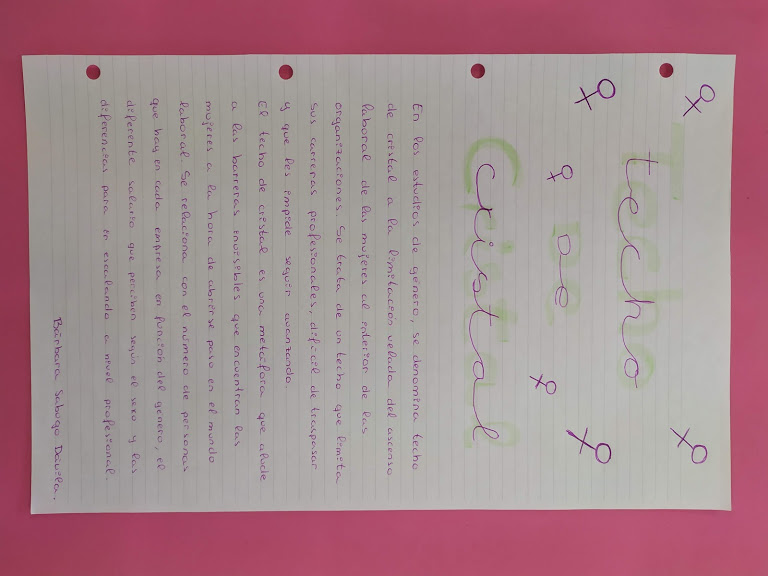 techo
DE
Cristal
En los estudios de género, se denomina techo
de cristal a la limitación velada del ascenso
laboral de las mujeres al interior de las
organizaciones. Se trata de un techo que limita
sus carreras profesionales, difícil de traspasar
y que les impide seguir avanzando.
El techo de cristal es una metáfora que alude
a las barreras invisibles que encuentran las
mujeres a la hora de abrirse paso en el mundo
laboral. Se relaciona con el número de personas
que hay en cada empresa en función del género, el
diferente salario que perciben según el sexo y las
diferencias para ir escalando a nivel profesional.
Bárbara Sabugo Dávila.